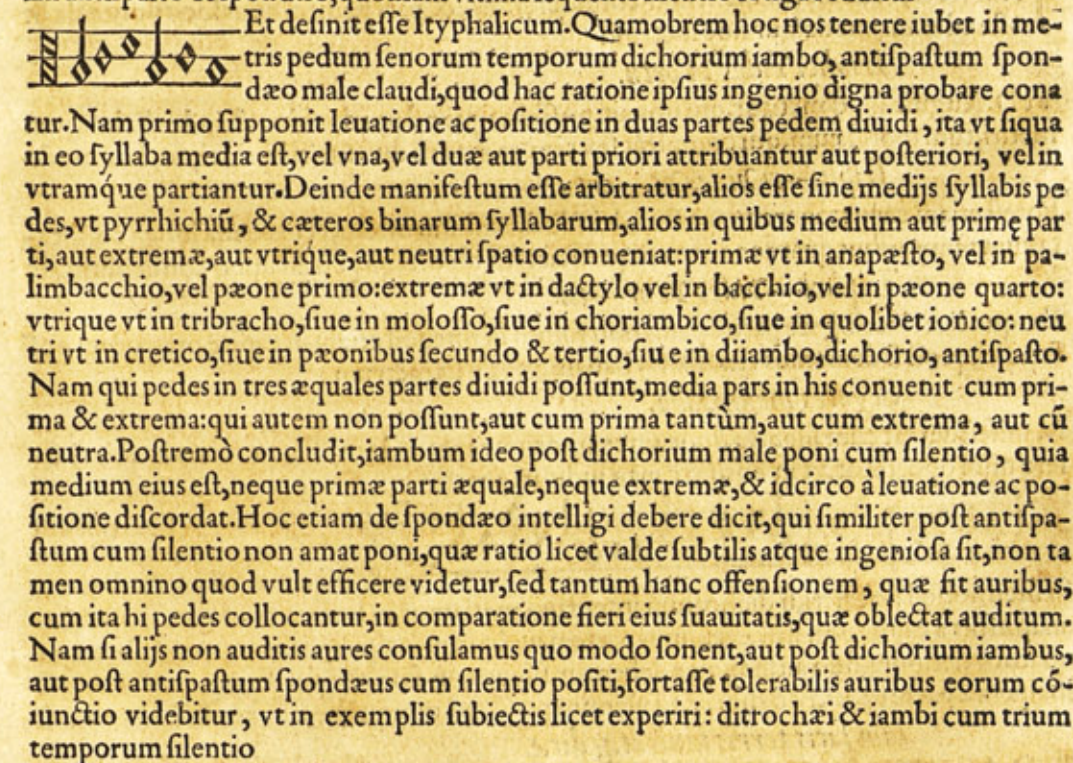 Et desinit esse Ityphalicum.Quamobrem hoc nos tenere iubet in me-
tris pedum senorum temporum dichorium iambo, antispastum spon-
dæo male claudi,quod hac ratione ipsius ingenio digna probare cona
tur.Nam primo supponit leuatione ac positione in duas partes pedem diuidi , ita vt siqua
in eo syllaba media est,vel vna,vel duæ aut parti priori attribuantur aut posteriori, vel in
vtramq́ue partiantur.Deinde manifestum esse arbitratur,alios esse sine medijs syllabis pe
des,vt pyrrhichiũ, & cæteros binarum syllabarum,alios in quibus medium aut primę par
ti,aut extremæ,aut vtriq́ue,aut neutri spatio conueniat:primæ vt in anapæsto, vel in pa-
limbacchio,vel pæone primo:extremæ vt in dactylo vel in bacchio,vel in pæone quarto:
vtrique vt in tribracho,siue in molosso,siue in choriambico,siue in quolibet ionico: neu
tri vt in cretico,siue in pæonibus secundo & tertio,siu e in diiambo,dichorio, antispasto.
Nam qui pedes in tres æquales partes diuidi possunt,media pars in his conuenit cum pri-
ma & extrema:qui autem non possunt,aut cum prima tantùm,aut cum extrema, aut cũ
neutra.Postremò concludit,iambum ideo post dichorium male poni cum silentio, quia
medium eius est,neque primæ parti æquale,neque extremæ,& idcirco à leuatione ac po-
sitione discordat.Hoc etiam de spondæo intelligi debere dicit,qui similiter post antispa-
stum cum silentio non amat poni,quæ ratio licet valde subtilis atque ingeniosa sit,non ta
men omnino quod vult efficere videtur,sed tantum hanc offensionem, quæ fit auribus,
cum ita hi pedes collocantur,in comparatione fieri eius suauitatis,quæ oblectat auditum.
Nam si alijs non auditis aures consulamus quo modo sonent,aut post dichorium iambus,
aut post antispastum spondæus cum silentio positi,fortasse tolerabilis auribus eorum có-
iunctio videbitur, vt in exemplis subiectis licet experiri: ditrochæi & iambi cum trium
temporum silentio